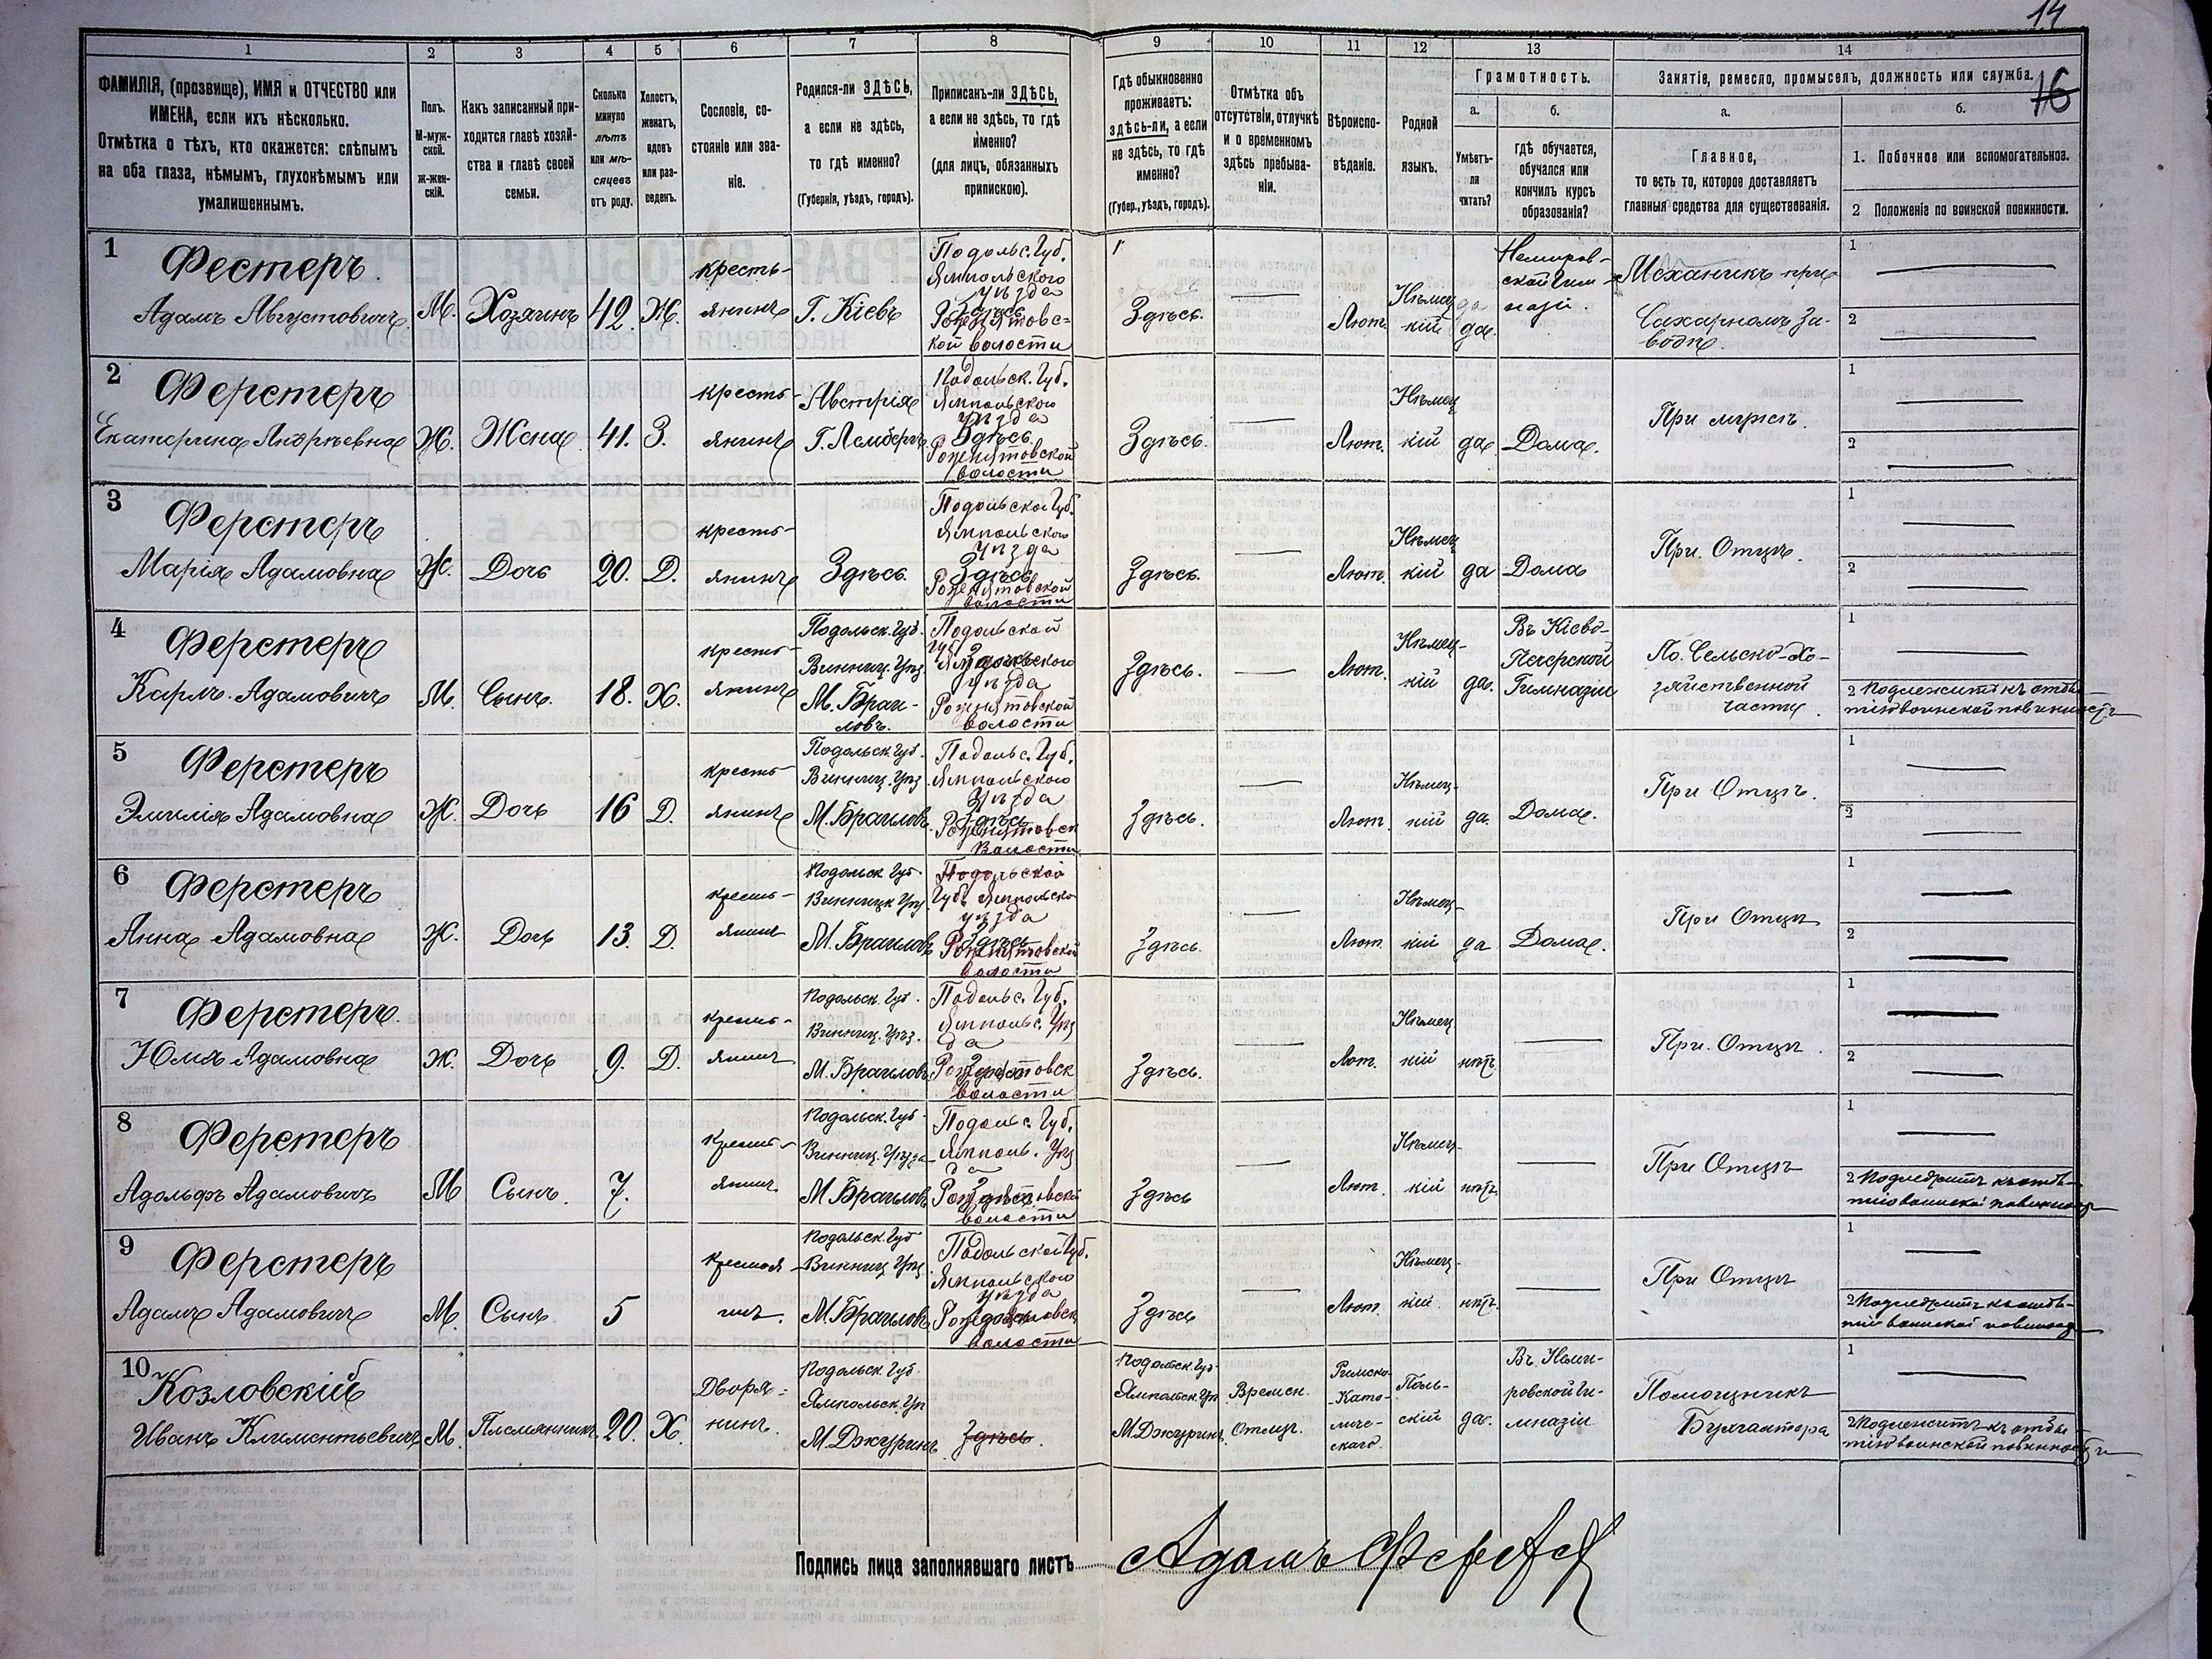 14
16
1 2 3 4 5 6 7 8 9 10 11 12 13 14
ФАМИЛІЯ, (прозвище), ИМЯ и ОТЧЕСТВО или
ИМЕНА, если ихъ нѣсколько.
Отмѣтка о тѣхъ, кто окажется: слѣпымъ
на оба глаза, нѣмымъ, глухонѣмымъ или
умалишеннымъ.
Полъ.
М-муж-
ской.
ж-жен-
скій.
Какъ записанный при-
ходится главѣ хозяй-
ства и главѣ своей
семьи.
Сколько
минуло
лѣтъ
или мѣ-
сяцевъ
отъ роду.
Холостъ,
женатъ,
вдовъ
или раз-
веденъ.
Сословіе, со-
стояніе или зва-
ніе.
Родился-ли ЗДѢСЬ,
а если не здѣсь,
то гдѣ именно?
(Губернія, уѣздъ, городъ).
Приписанъ-ли ЗДѢСЬ,
а если не здѣсь, то гдѣ
именно?
(для лицъ, обязанныхъ
припискою).
Гдѣ обыкновенно
проживаетъ:
здѣсь-ли, а если
не здѣсь, то гдѣ
именно?
(Губер., уѣздъ, городъ).
Отмѣтка объ
отсутствіи, отлучкѣ
и о временномъ
здѣсь пребыва-
ніи.
Вѣроиспо-
вѣданіе.
Родной
языкъ.
Грамотность.
а.
Умѣетъ-
ли
читать?
б.
гдѣ обучается,
обучался или
кончилъ курсъ
образованія?
Занятіе, ремесло, промыселъ, должность или служба.
а.
Главное,
то есть то, которое доставляетъ
главныя средства для существованія.
б.
1. Побочное или вспомогательное.
2 Положеніе по воинской повинности.
1
Фестеръ
Адамъ Августовичъ
М.
Хозяинъ
42
Ж.
кресть-
янинъ
Г. Кіевъ
Подольс. Губ.
Ямпольского
уѣзда
Здѣсь
Рожнятовс-
кой волости
Здѣсь.
Лют.
Нѣмец
кій
да
да
Немиров-
ской Гим-
назіи.
Механикъ при
Сахарномъ За-
водѣ.
1
2
2
Ферстеръ
Екатерина Андрѣевна
Ж.
Жена
41.
З.
кресть-
янинъ
Австрія
Г. Лембергъ
Подольск. Губ.
Ямпольского
уѣзда
Здѣсь
Рожнятовской
волости
Здѣсь.
Лют.
Нѣмец
кій
да
Дома.
При мужѣ.
1
2
3
Ферстеръ
Марія Адамовна
Ж.
Дочь
20.
Д.
кресть-
янинъ
Здѣсь.
Подольской Губ.
Ямпольского
уѣзда
Здѣсь
Рожнятовской
волости
Здѣсь.
Лют.
Нѣмец
кій
да
Дома
При. Отцѣ.
1
2
4
Ферстеръ
Карлъ Адамовичъ
М.
Сынъ.
18.
Х.
кресть-
янинъ
Подольск. Губ.
Винниц. Уѣз.
М. Браи-
ловъ.
Подольской
Губ.
Здѣсь
Ямпольского
уѣзда
Рожнятовской
волости
Здѣсь.
Лют.
Нѣмец-
кій
да.
Въ Кіево-
Печерской
Гимназіи
По. Сельско-Хо-
зяйственной
части.
1
2 Подлежитъ къ отбы-
тію воинской повинности
5
Ферстеръ
Эмилія Адамовна
Ж.
Дочь
16
Д.
кресть-
янинъ
Подольск. Губ.
Винниц. Уѣз.
М. Браиловъ
Подольс. Губ.
Ямпольского
Уѣзда
Здѣсь
Рожнятовск
Волости
Здѣсь.
Лют.
Нѣмец-
кій
да.
Дома.
При Отцѣ.
1
2
6
Ферстеръ
Анна Адамовна
Ж.
Дочь
13.
Д.
кресть-
янинъ
Подольск. Губ.
Винницк. Уѣз
М. Браиловъ
Подольской
Губ. Ямпольско
уѣзда
Здѣсь
Рожнятовской
волости
Здѣсь.
Лют.
Нѣмец-
кій
да
Дома.
При Отцѣ
1
2
7
Ферстеръ.
Юлія Адамовна
Ж.
Дочь
9.
Д.
кресть-
янинъ
Подольск. Губ.
Винниц. Уѣз.
М. Браиловъ
Подольс. Губ.
Ямпольс. Уѣз
да
Здѣсь
Рожнятовск
волости
Здѣсь.
Лют.
Нѣмец
кій
нѣтъ
При. Отцѣ.
1
2
8
Ферстеръ
Адольфъ Адамовичъ
М
Сынъ.
7.
кресть-
янинъ
Подольск. Губ.
Винниц. Уѣзда
М. Браиловъ
Подольс. Губ.
Ямполь. Уѣз
да
Здѣсь
Рожнятовской
волости
Здѣсь
Лют.
Нѣмец-
кій
нѣтъ.
При Отцѣ
1
2 Подлежитъ къ отбы-
тію воинской повинност
9
Ферстеръ
Адамъ Адамовичъ
М.
Сынъ
5
крестья-
нинъ.
Подольск. Губ
Винниц. Уѣз
М. Браиловъ
Подольской Губ.
Ямпольского
уѣзда
Здѣсь
Рожнятовск
волости
Здѣсь
Лют.
Нѣмец-
кій.
нѣтъ.
При Отцѣ
1
2 Подлежитъ къ отбы-
тію воинской повинност
10
Козловскій
Иванъ Климентьевичъ
М.
Племянникъ
20.
Х.
Дворя-
нинъ.
Подольск. Губ
Ямпольск. Уѣз
М. Джуринъ.
Здѣсь.
Подольск. Губ.
Ямпольск. Уѣз
М. Джуринъ.
Времен.
Отлуч.
Римско-
Като-
личе-
скаго.
Поль-
скій
да.
Въ Неми-
ровской Ги-
мназіи
Помощникъ
Бухгалтера
1
2 Подлежитъ къ отбы
тію воинской повинности
Подпись лица заполнявшаго листъ
Адамъ Ферстер